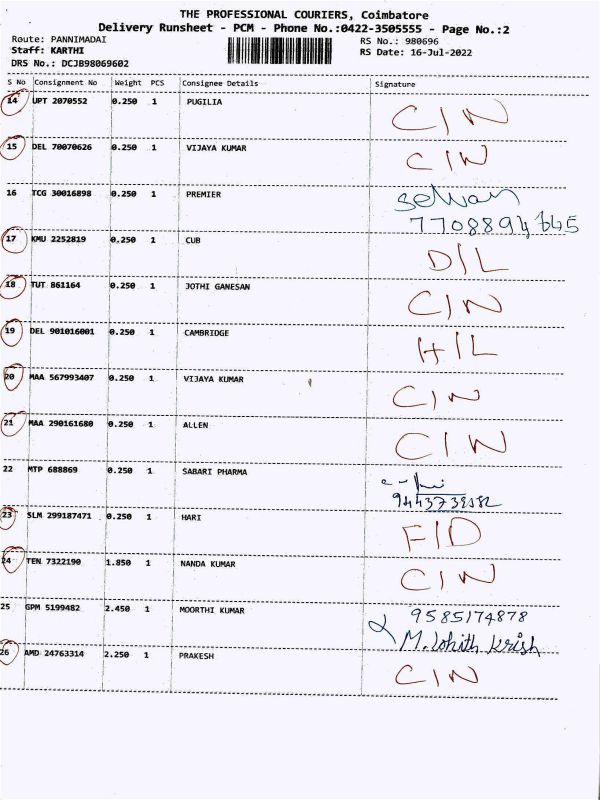 THE PROFESSIONAL COURIERS, Coimbatore
Delivery Runsheet - PCM - Phone No.:0422-3505555 - Page No.:2
Route: PANNIMADAI RS No.: 980696
Staff: KARTHI RS Date: 16-Jul-2022
DRS No.: DCJB98069602
S No Consignment No Weight PCS Consignee Details Signature
14 UPT 2070552 0.250 1 PUGILIA C/N
15 DEL 70070626 0.250 1 VIJAYA KUMAR C/N
16 TCG 30016898 0.250 1 PREMIER Selvan
7708894645
17 KMU 2252819 0.250 1 CUB D/L
18 TUT 861164 0.250 1 JOTHI GANESAN C/N
19 DEL 901016001 0.250 1 CAMBRIDGE H/L
20 MAA 567993407 0.250 1 VIJAYA KUMAR C/N
21 MAA 290161680 0.250 1 ALLEN C/N
22 MTP 688869 0.250 1 SABARI PHARMA
23 SLM 299187471 0.250 1 HARI F/D
24 TEN 7322190 1.850 1 NANDA KUMAR C/N
25 GPM 5199482 2.450 1 MOORTHI KUMAR 9585174878
M. Lohith Krish
26 AMD 24763314 2.250 1 PRAKESH C/N